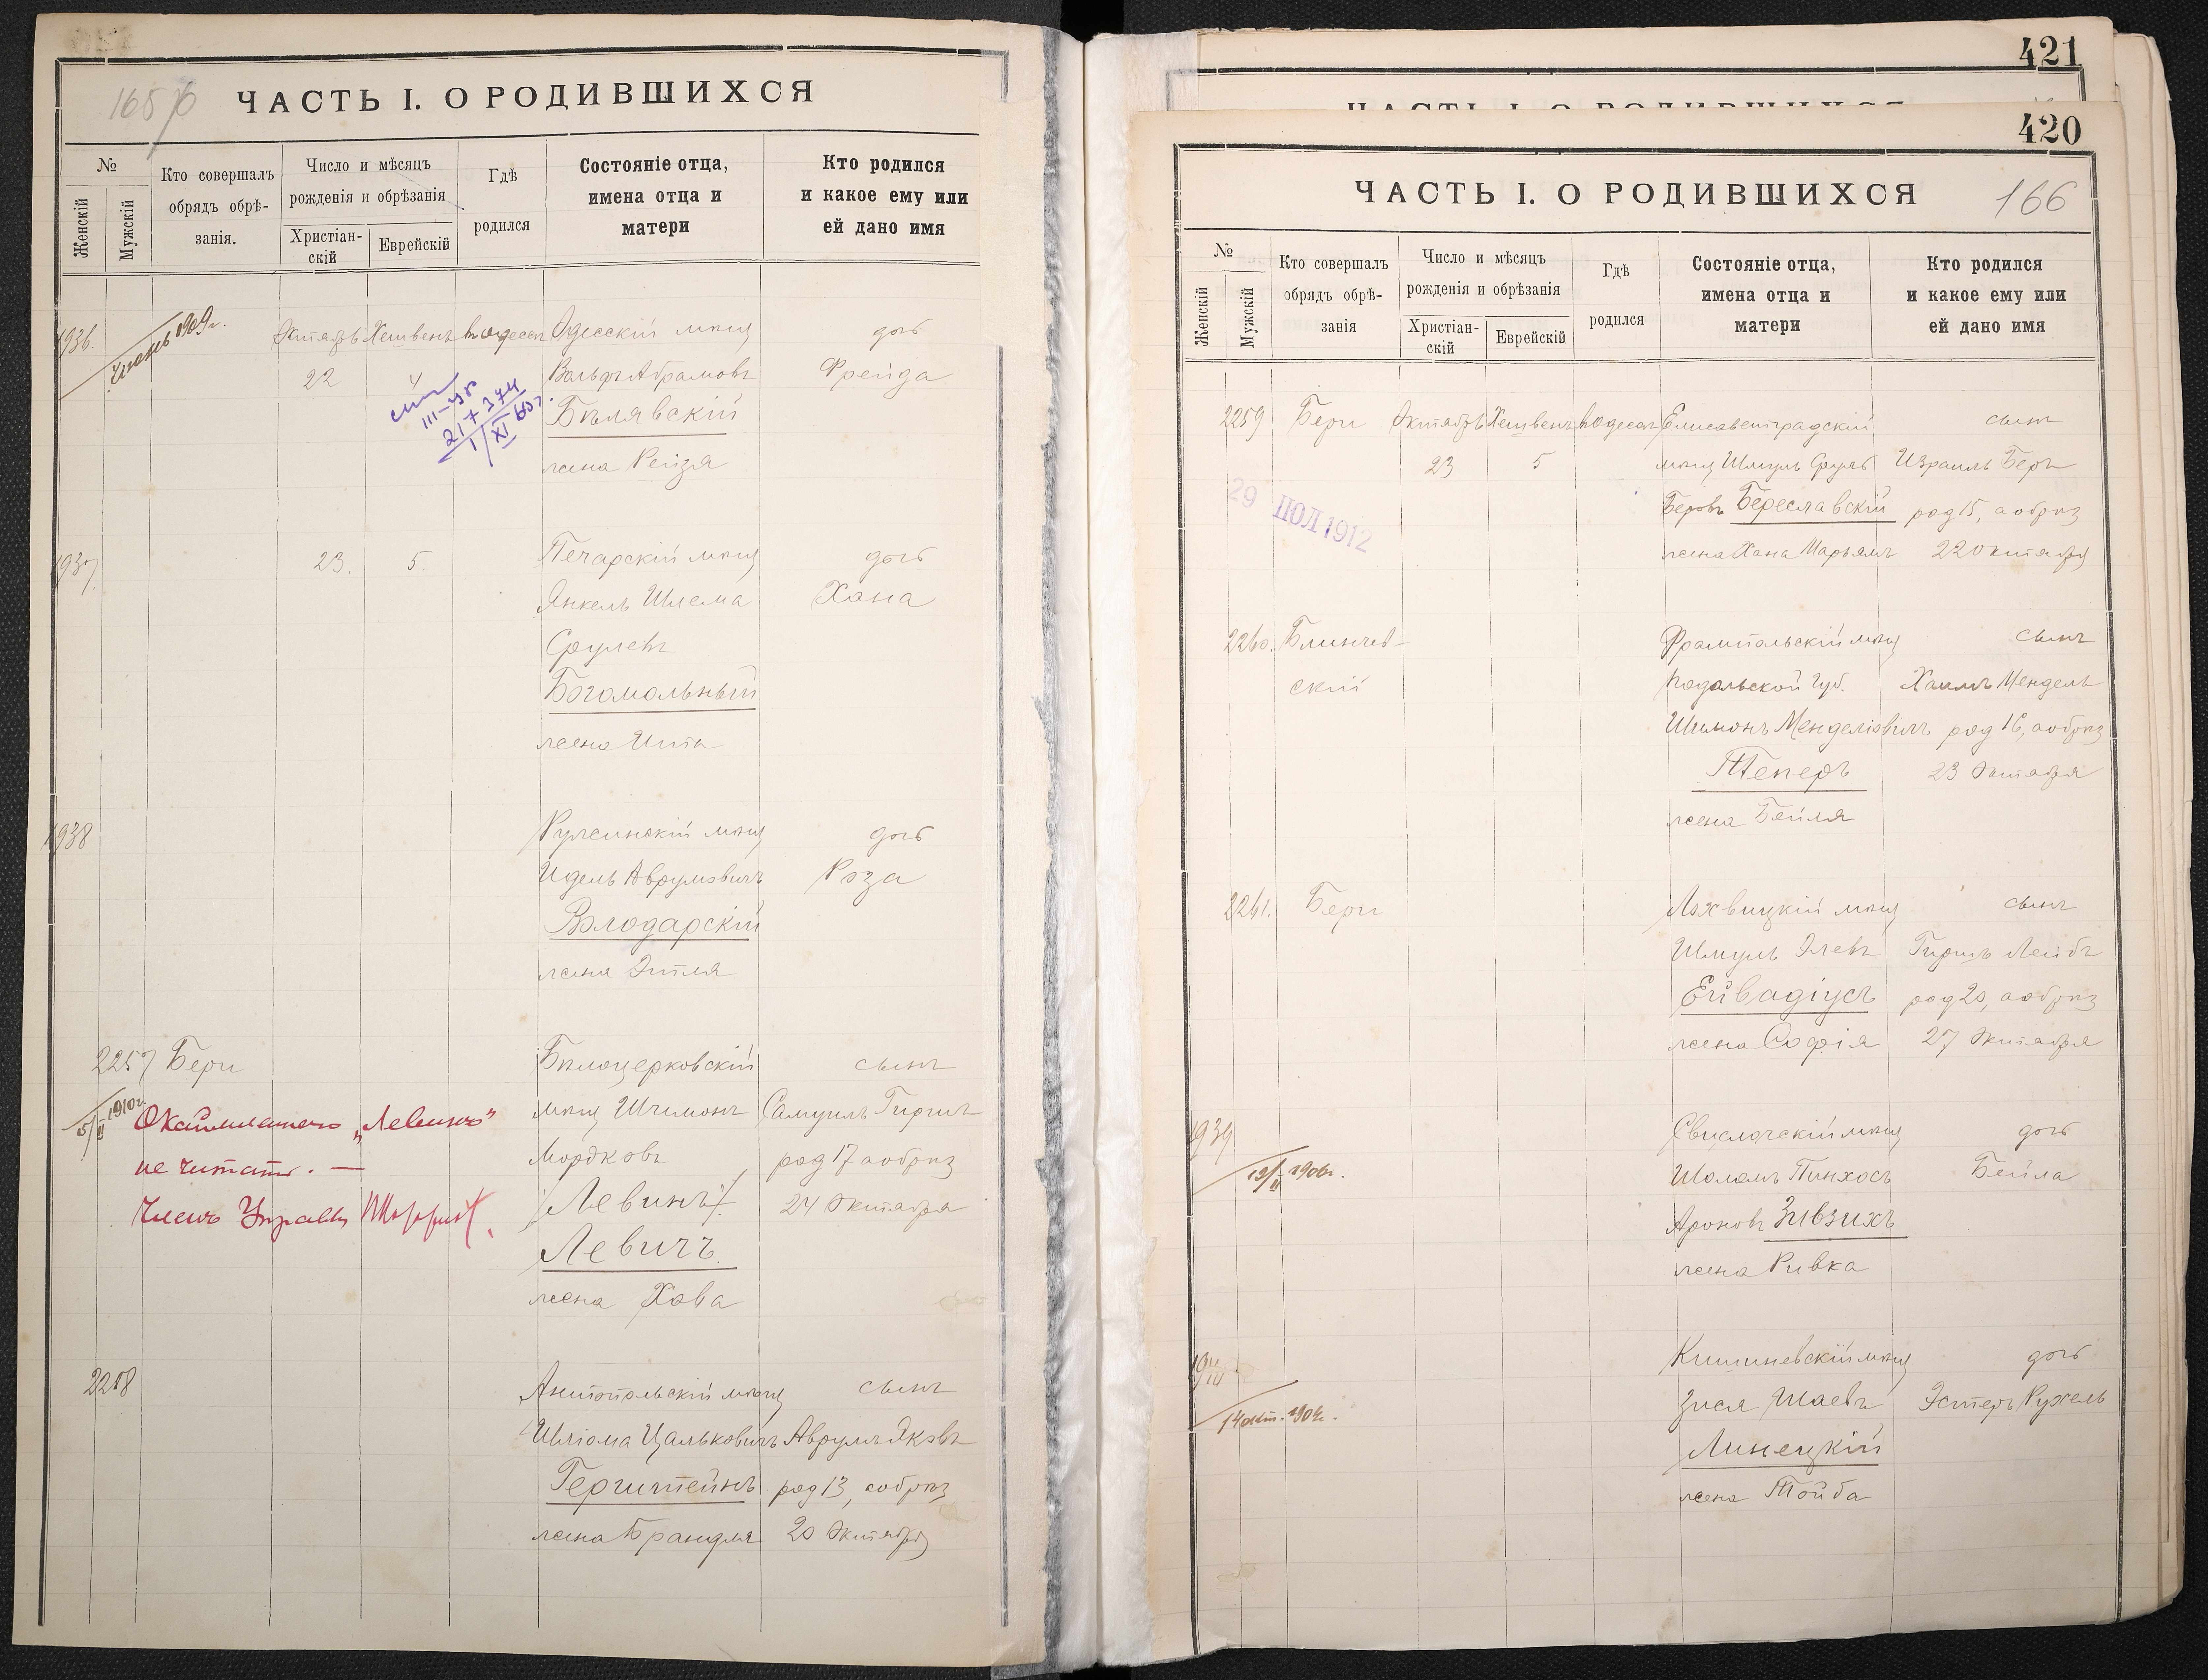 165
ЧАСТЬ I. О РОДИВШИХСЯ
№
Женскій
Мужскій
Кто совершалъ
обрядъ обрѣ-
занія.
Число и мѣсяцъ
рожденія и обрѣзанія
Христіан-
скій
Еврейскій
Гдѣ
родился
Состояніе отца,
имена отца и
матери
Кто родился
и какое ему или
ей дано имя
1936. 1909г. Октябрь Хешвенъ въ Одессѣ Одесскій мѣщ дочь
22 4 Вольфъ Абрамовъ Фрейда
Бѣлявскій
жена Рейзя
III-УК
217374
1/XI 60г.
1937. 23. 5. Печарскій мѣщ дочь
Янкель Шлема Хана
Срулевъ
Богомольный
жена Ита
1938 Ружинскій мѣщ дочь
Идель Аврумовичъ Роза
Володарскій
жена Этля
2257 Бери Бѣлоцерковскій сынъ
5/II 1910г. мѣщ Шимонъ Самуилъ Гиршъ
Мордковъ род 17 а обрѣз
/Левинъ/ 24 Октября
Левичъ
жена Хава
„Левинъ"
не читать. —
Членъ Управы
2258 Антопольскій мѣщ сынъ
Шліома Цальковичъ Аврумъ Яковъ
Герштейнъ род 13, а обрѣз
жена Брандля 20 Октября
421
420
ЧАСТЬ I. О РОДИВШИХСЯ 166
№
Женскій
Мужскій
Кто совершалъ
обрядъ обрѣ-
занія
Число и мѣсяцъ
рожденія и обрѣзанія
Христіан-
скій
Еврейскій
Гдѣ
родился
Состояніе отца,
имена отца и
матери
Кто родился
и какое ему или
ей дано имя
2259 Бери Октябрь Хешвенъ въ Одессѣ Елисаветградскій сынъ
23 5 мѣщ Шмуль Сруль Израиль Беръ
Беровъ Береславскій род 15, а обрѣз
жена Хана Марьямъ 22 Октября
29 ІЮЛ 1912
2260. Блинчев- Фрампольскій мѣщ сынъ
скій Подольской Губ. Хаимъ Мендель
Шимонъ Менделіовичъ род 16, а обрѣз
Теперъ 23 Октября
жена Бейля
2261. Бери Лохвицкій мѣщ сынъ
Шмуль Элевъ Гиршъ Лейбъ
Ейвадіусъ род 20, а обрѣз
жена Софія 27 Октября
1939 Свислочскій мѣщ дочь
1906г. Шоломъ Пинхосъ Бейла
Ароновъ Зивзихъ
жена Ривка
Кишиневскій мѣщ дочь
14 окт. 1904г. Зися Шаевъ Эстеръ Рухель
Линецкій
жена Тойба